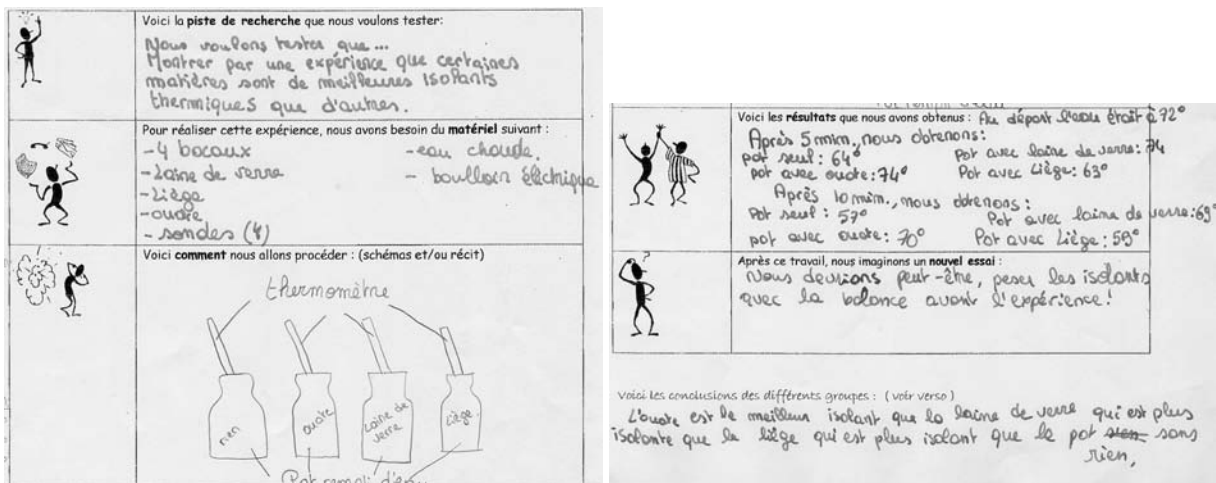 Voici la piste de recherche que nous voulons tester:
Nous voulons tester que ...
Montrer par une expérience que certaines
matières sont de meilleures isolants
thermiques que d'autres.
Pour réaliser cette expérience, nous avons besoin du matériel suivant :
- 4 bocaux
- eau chaude.
- Laine de verre
- bouilloir éléctrique
- Liège
- ouate
- sondes (4)
Voici comment nous allons procéder : (schémas et/ou récit)
thermomètre
rien
ouate
Laine de
verre
Liège
Pot rempli d'eau
Voici les résultats que nous avons obtenus : Au départ l'eau était à 72°
Après 5 mim., nous obtenons:
pot seul : 64°
Pot avec laine de verre: 74
pot avec ouate: 74°
Pot avec Liège: 63°
Après 10 mim., nous obtenons:
Pot seul : 57°
Pot avec laine de verre: 69°
pot avec ouate: 70°
Pot avec Liège: 59°
Après ce travail, nous imaginons un nouvel essai :
Nous devrions peut-être, peser les isolants
avec la balance avant l'expérience!
Voici les conclusions des différents groupes : (voir verso)
L'ouate est le meilleur isolant que la laine de verre qui est plus
isolante que le liège qui est plus isolant que le pot sans
rien,